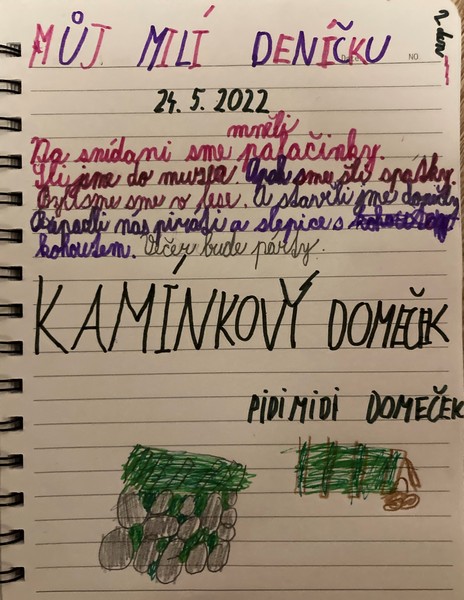 2. den
MŮJ MILÍ DENÍČKU
NO.
24. 5. 2022
mněli
Na snídani sme palačinky.
Šli jsme do muzea. Apak sme šli spátky.
sme v lese. A stavěli jme domečky
Nápadli nás piráti a slepice s
kohoutem. Večer bude párty.
KAMÍNKOVÝ DOMEČEK
PIDIMIDI DOMEČEK